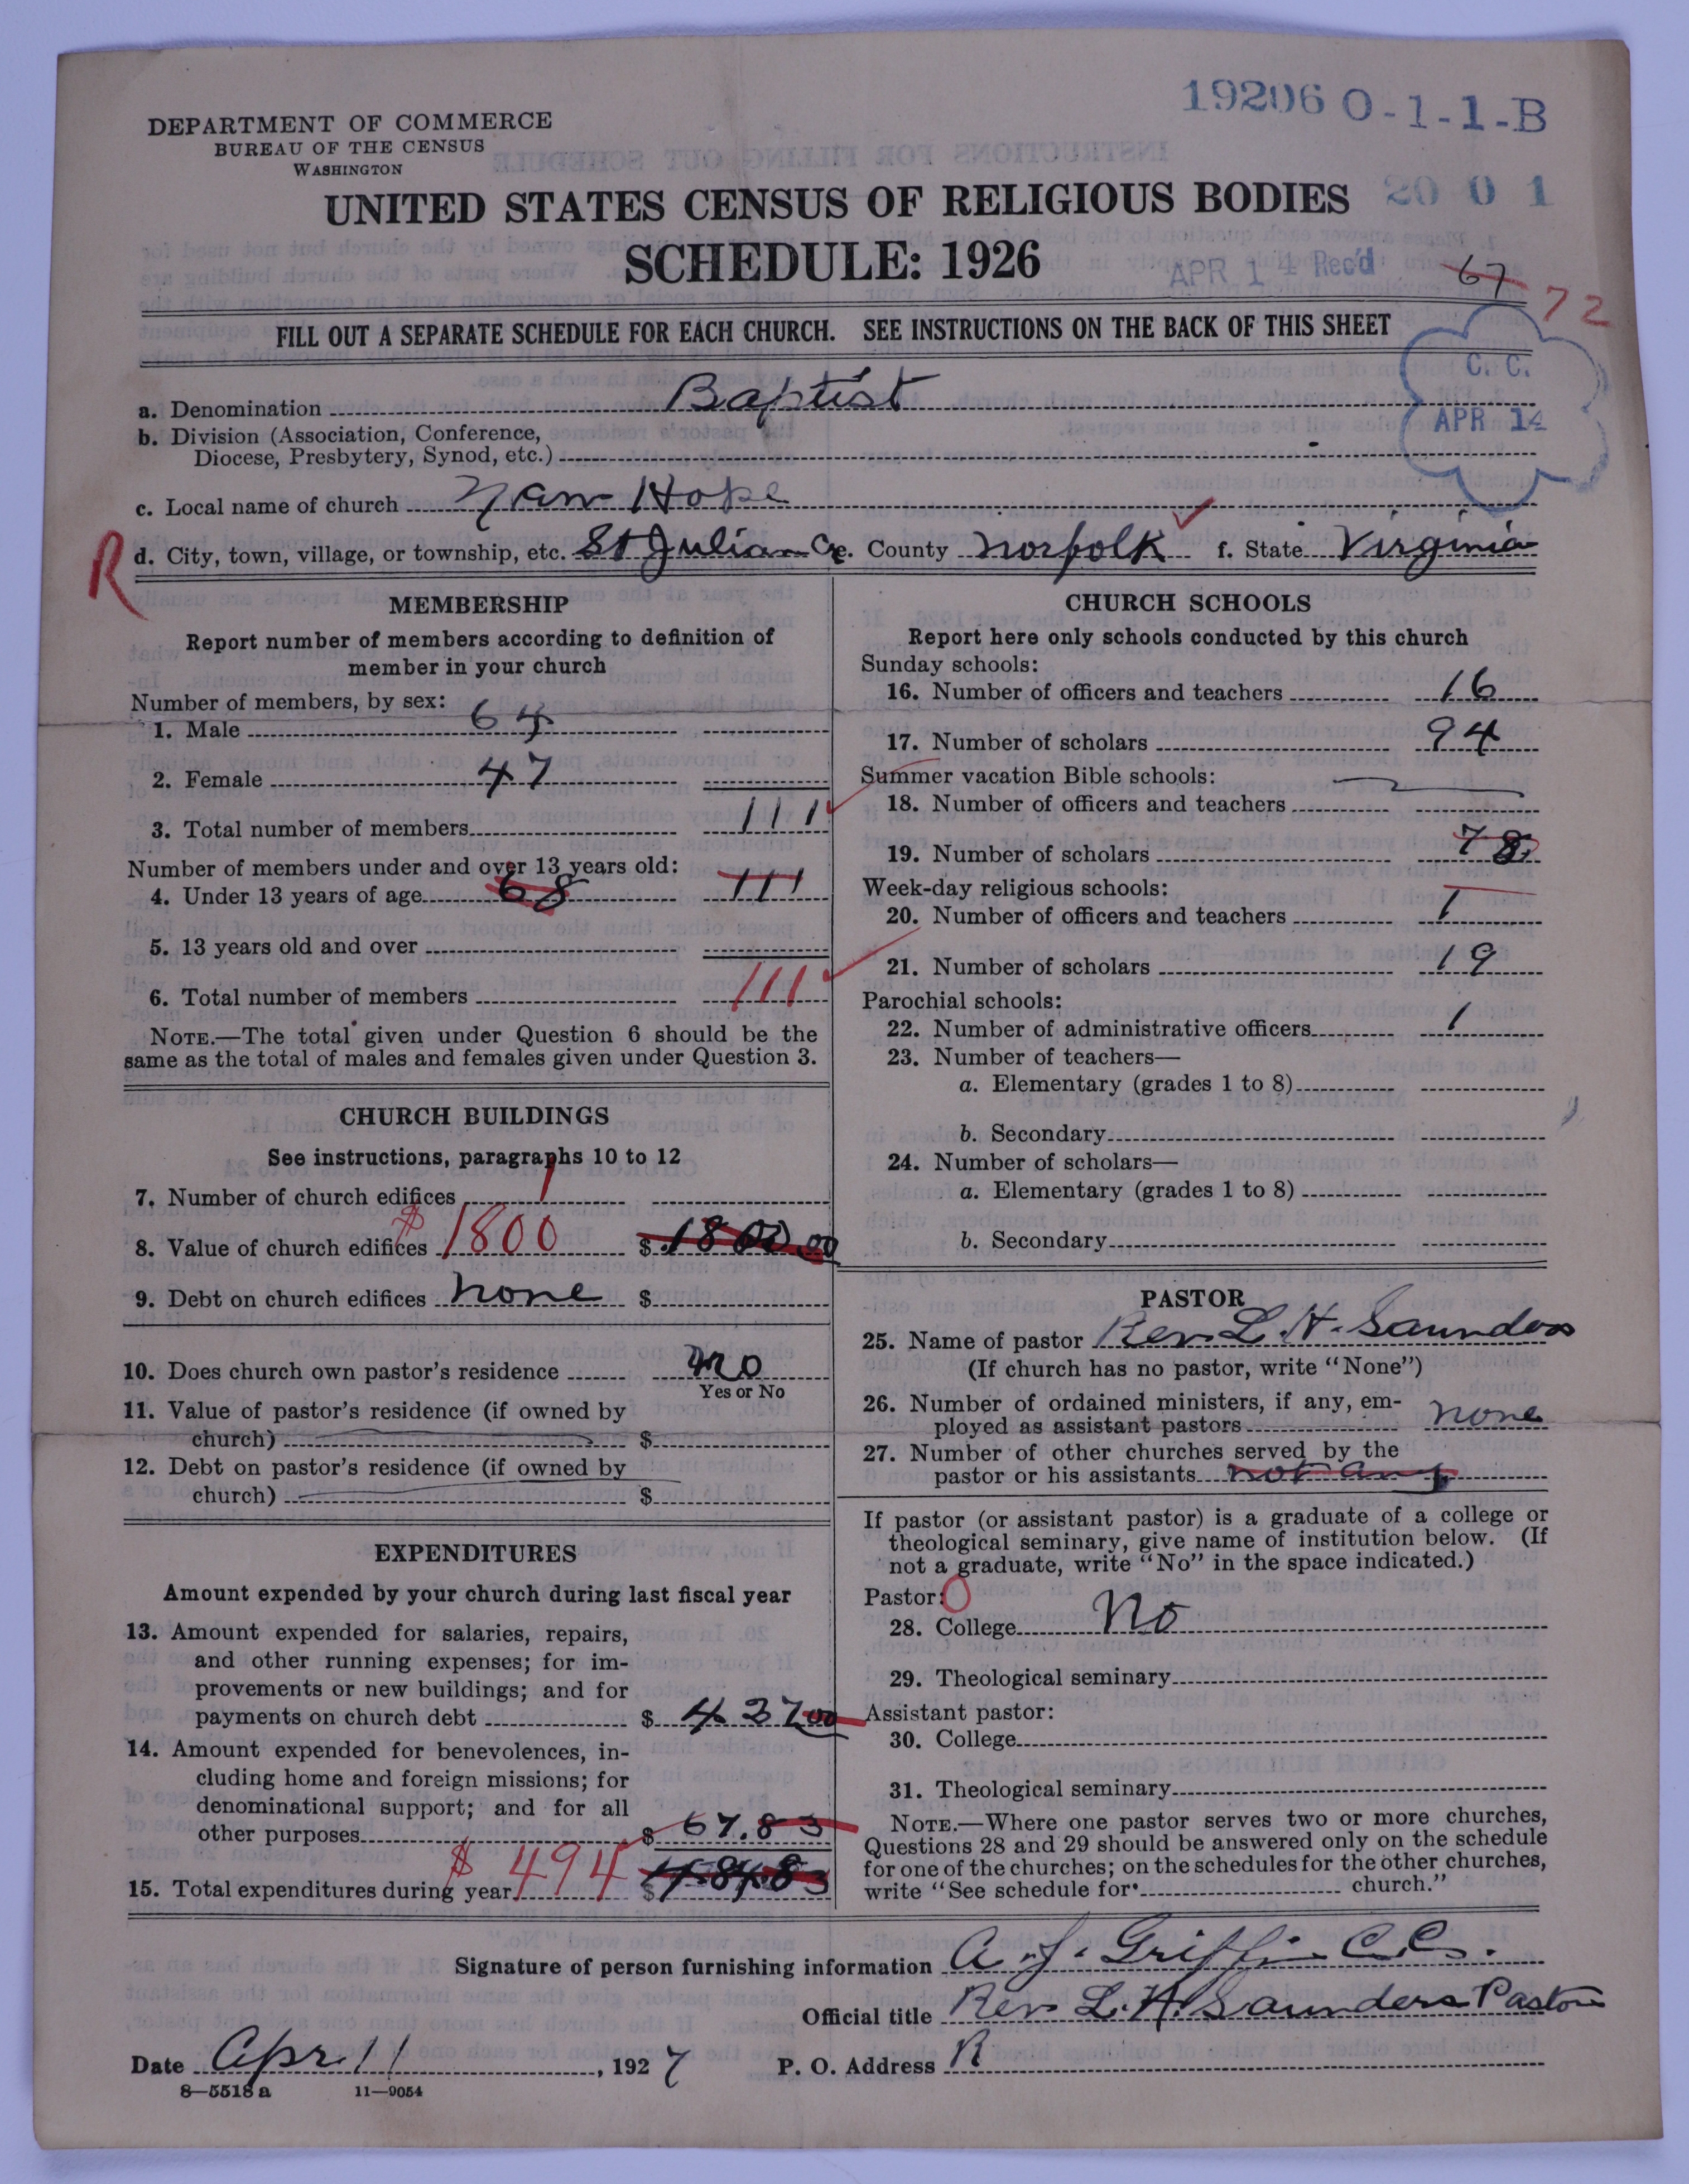 19206 0-1-1-B
DEPARTMENT OF COMMERCE
BUREAU OF THE CENSUS
WASHINGTON
UNITED STATES CENSUS OF RELIGIOUS BODIES
20 0 1
SCHEDULE: 1926
APR 14 Rec'd
67
72
FILL OUT A SEPARATE SCHEDULE FOR EACH CHURCH. SEE INSTRUCTIONS ON THE BACK OF THIS SHEET
C. C.
APR 14
a. Denomination Baptist
b. Division (Association, Conference,
Diocese, Presbytery, Synod, etc.)
c. Local name of church Hope
R
d. City, town, village, or township, etc. St Julian C e. County Norfolk f. State Virginia
MEMBERSHIP
Report number of members according to definition of
member in your church
Number of members, by sex:
1. Male 64
2. Female 47
3. Total number of members 111
Number of members under and over 13 years old:
4. Under 13 years of age 68 111
5. 13 years old and over
6. Total number of members 111
NOTE.—The total given under Question 6 should be the
same as the total of males and females given under Question 3.
CHURCH BUILDINGS
See instructions, paragraphs 10 to 12
7. Number of church edifices 1
8. Value of church edifices $1800 $ 1800 00
9. Debt on church edifices none $
10. Does church own pastor's residence no
Yes or No
11. Value of pastor's residence (if owned by
church) $
12. Debt on pastor's residence (if owned by
church) $
EXPENDITURES
Amount expended by your church during last fiscal year
13. Amount expended for salaries, repairs,
and other running expenses; for im-
provements or new buildings; and for
payments on church debt $ 427 00
14. Amount expended for benevolences, in-
cluding home and foreign missions; for
denominational support; and for all
other purposes $ 67.83
15. Total expenditures during year $ 494 $
CHURCH SCHOOLS
Report here only schools conducted by this church
Sunday schools:
16. Number of officers and teachers 16
17. Number of scholars 94
Summer vacation Bible schools:
18. Number of officers and teachers
19. Number of scholars 78
Week-day religious schools:
20. Number of officers and teachers 1
21. Number of scholars 19
Parochial schools:
22. Number of administrative officers 1
23. Number of teachers—
a. Elementary (grades 1 to 8)
b. Secondary
24. Number of scholars—
a. Elementary (grades 1 to 8)
b. Secondary
PASTOR
25. Name of pastor Rev. L. H. Saunders
(If church has no pastor, write "None")
26. Number of ordained ministers, if any, em-
ployed as assistant pastors none
27. Number of other churches served by the
pastor or his assistants not any
If pastor (or assistant pastor) is a graduate of a college or
theological seminary, give name of institution below. (If
not a graduate, write "No" in the space indicated.)
Pastor: O
28. College No
29. Theological seminary
Assistant pastor:
30. College
31. Theological seminary
NOTE.—Where one pastor serves two or more churches,
Questions 28 and 29 should be answered only on the schedule
for one of the churches; on the schedules for the other churches,
write "See schedule for church."
Signature of person furnishing information A. J. Griffin C.C.
Official title Rev L. H. Saunders Pastor
Date Apr 11, 1927 P. O. Address R
8—5518 a 11—9054